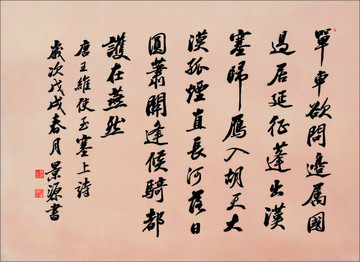 單車欲問邊屬國
過居延征蓬出漢
塞歸雁入胡天大
漠孤煙直長河落日
圓蕭關逢候騎都
護在燕然
唐王維使至塞上詩
歲次戊戌春月景源書